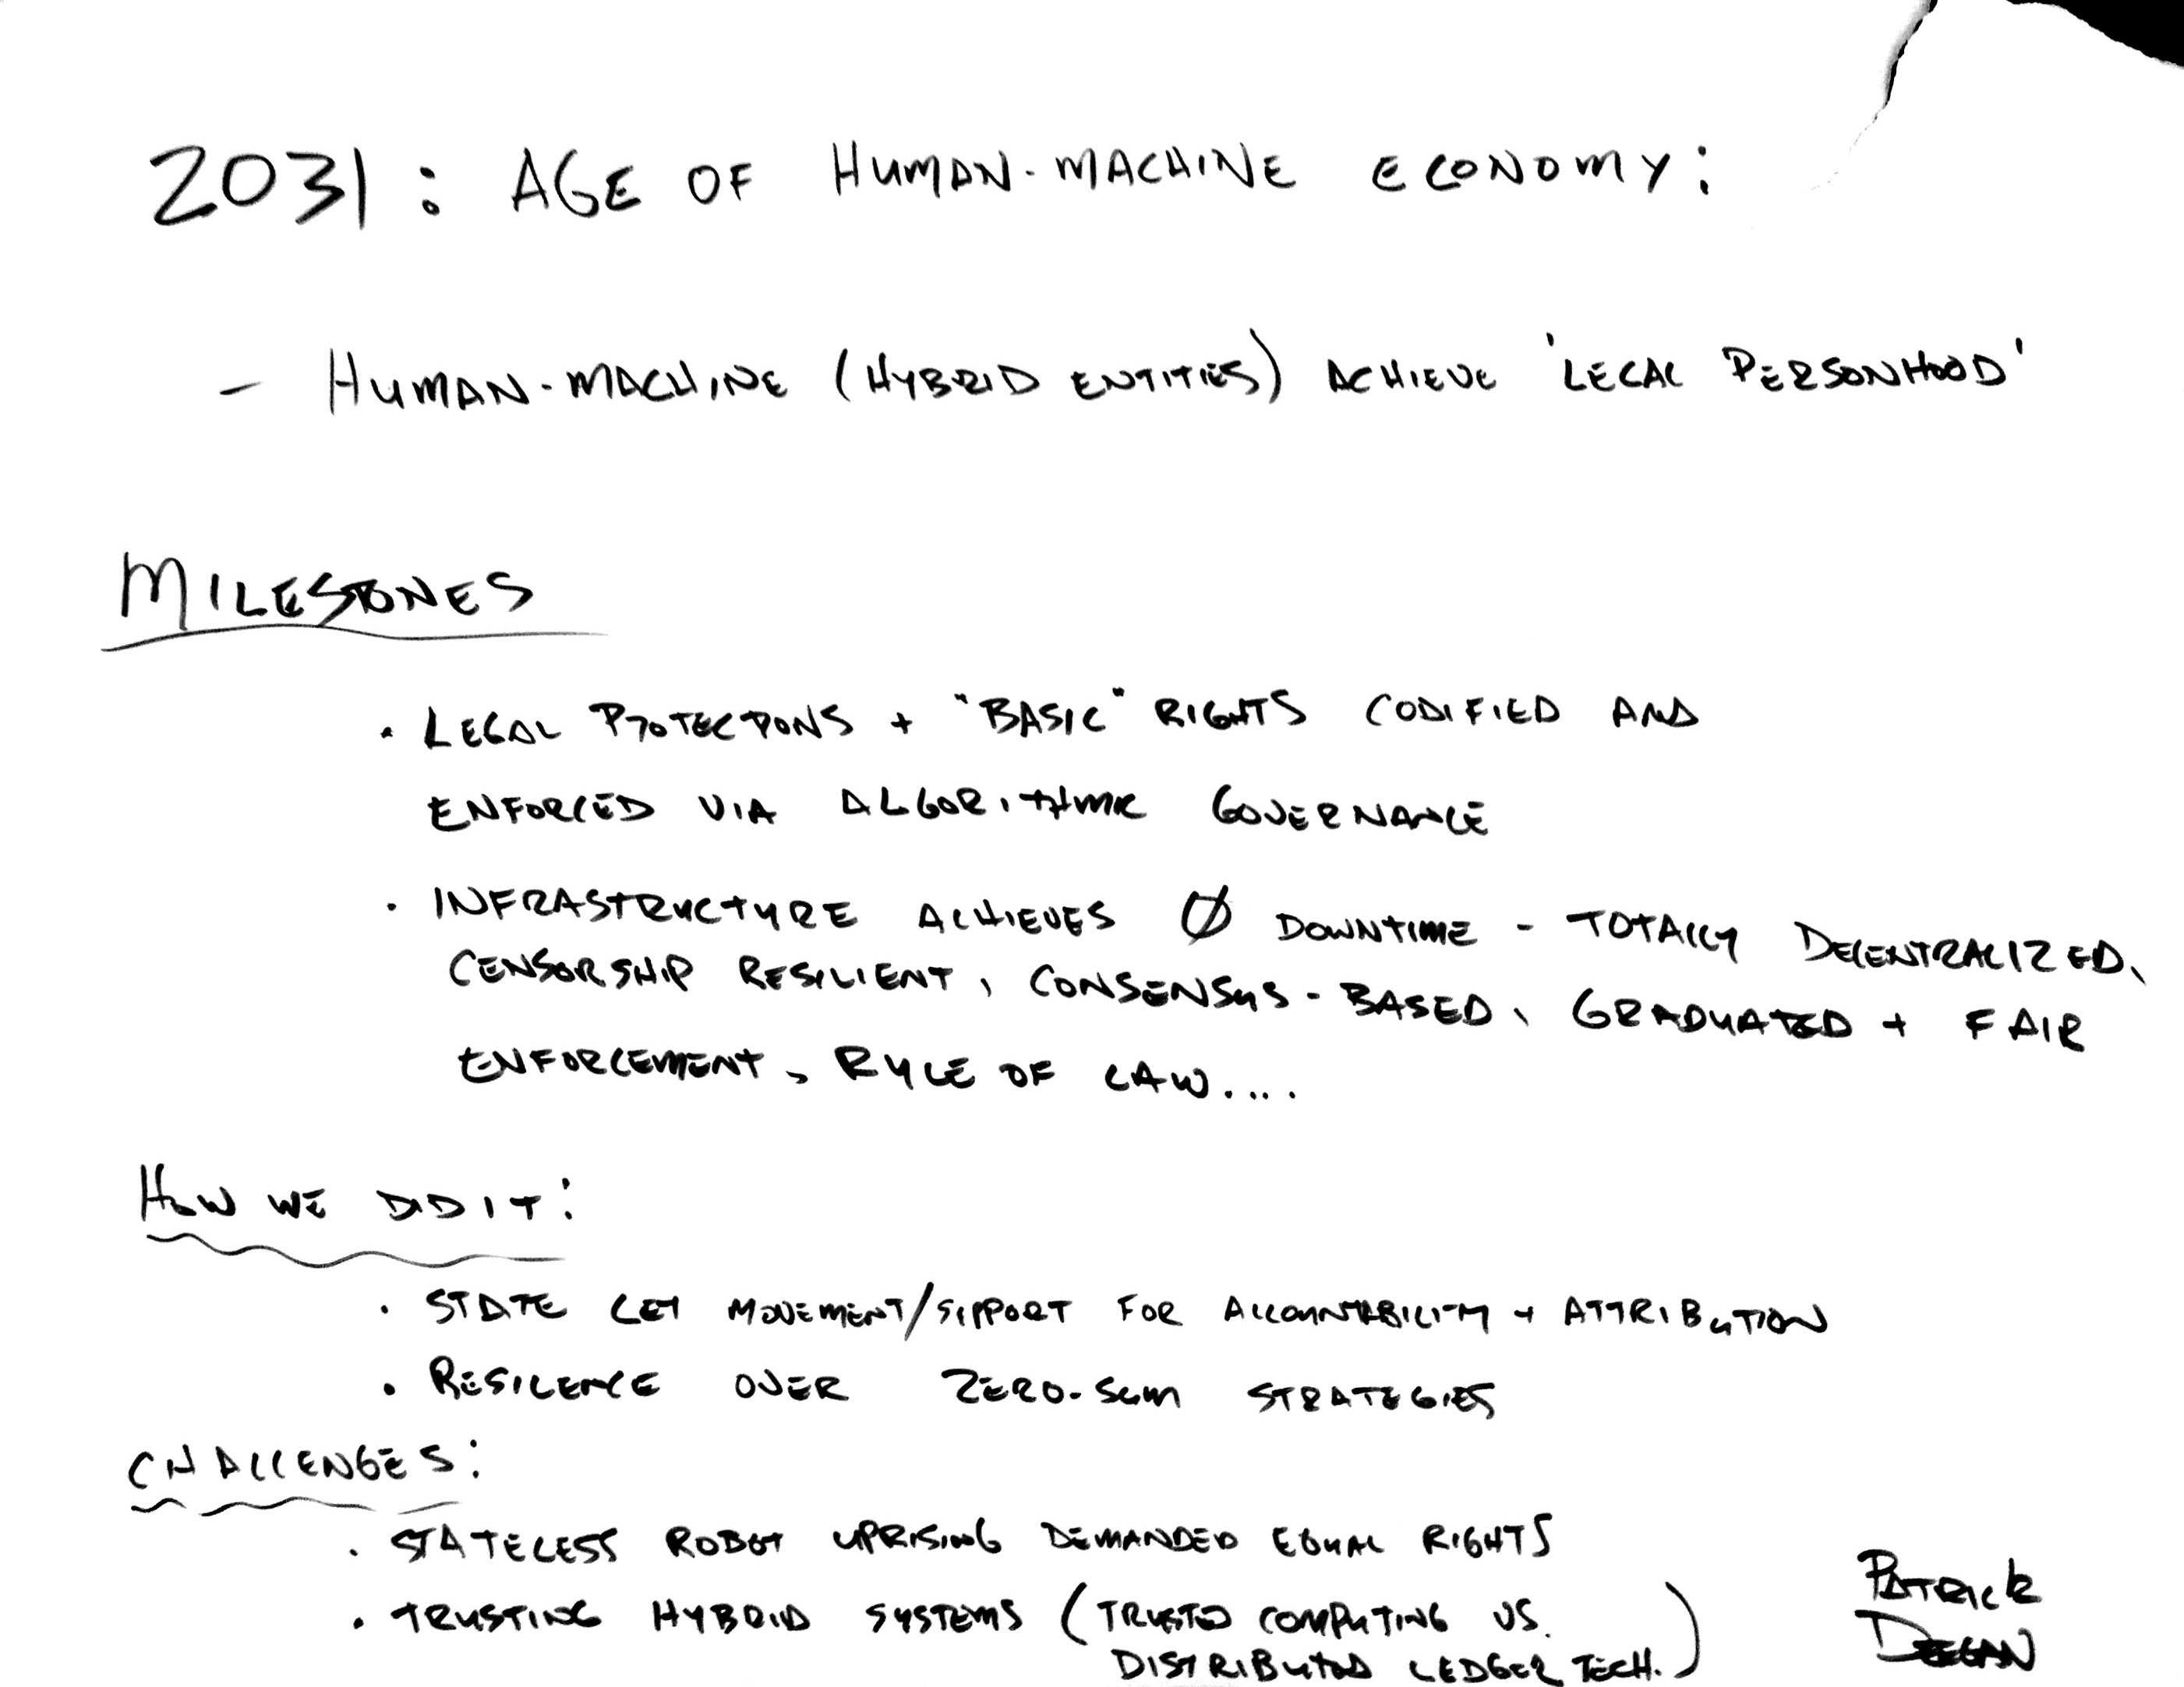 2031: AGE OF HUMAN-MACHINE ECONOMY:
- HUMAN-MACHINE (HYBRID ENTITIES) ACHIEVE 'LEGAL PERSONHOOD'
MILESTONES
• LEGAL PROTECTIONS + "BASIC" RIGHTS CODIFIED AND
ENFORCED VIA ALGORITHMIC GOVERNANCE
• INFRASTRUCTURE ACHIEVES Ø DOWNTIME - TOTALLY DECENTRALIZED,
CENSORSHIP RESILIENT, CONSENSUS-BASED, GRADUATED + FAIR
ENFORCEMENT, RULE OF LAW....
HOW WE DID IT:
• STATE LET MOVEMENT/SUPPORT FOR ACCOUNTABILITY + ATTRIBUTION
• RESILENCE OVER ZERO-SUM STRATEGIES
CHALLENGES:
• STATELESS ROBOT UPRISING DEMANDED EQUAL RIGHTS
• TRUSTING HYBRID SYSTEMS (TRUSTED COMPUTING VS.
DISTRIBUTED LEDGER TECH.)
PATRICK
DEEGAN